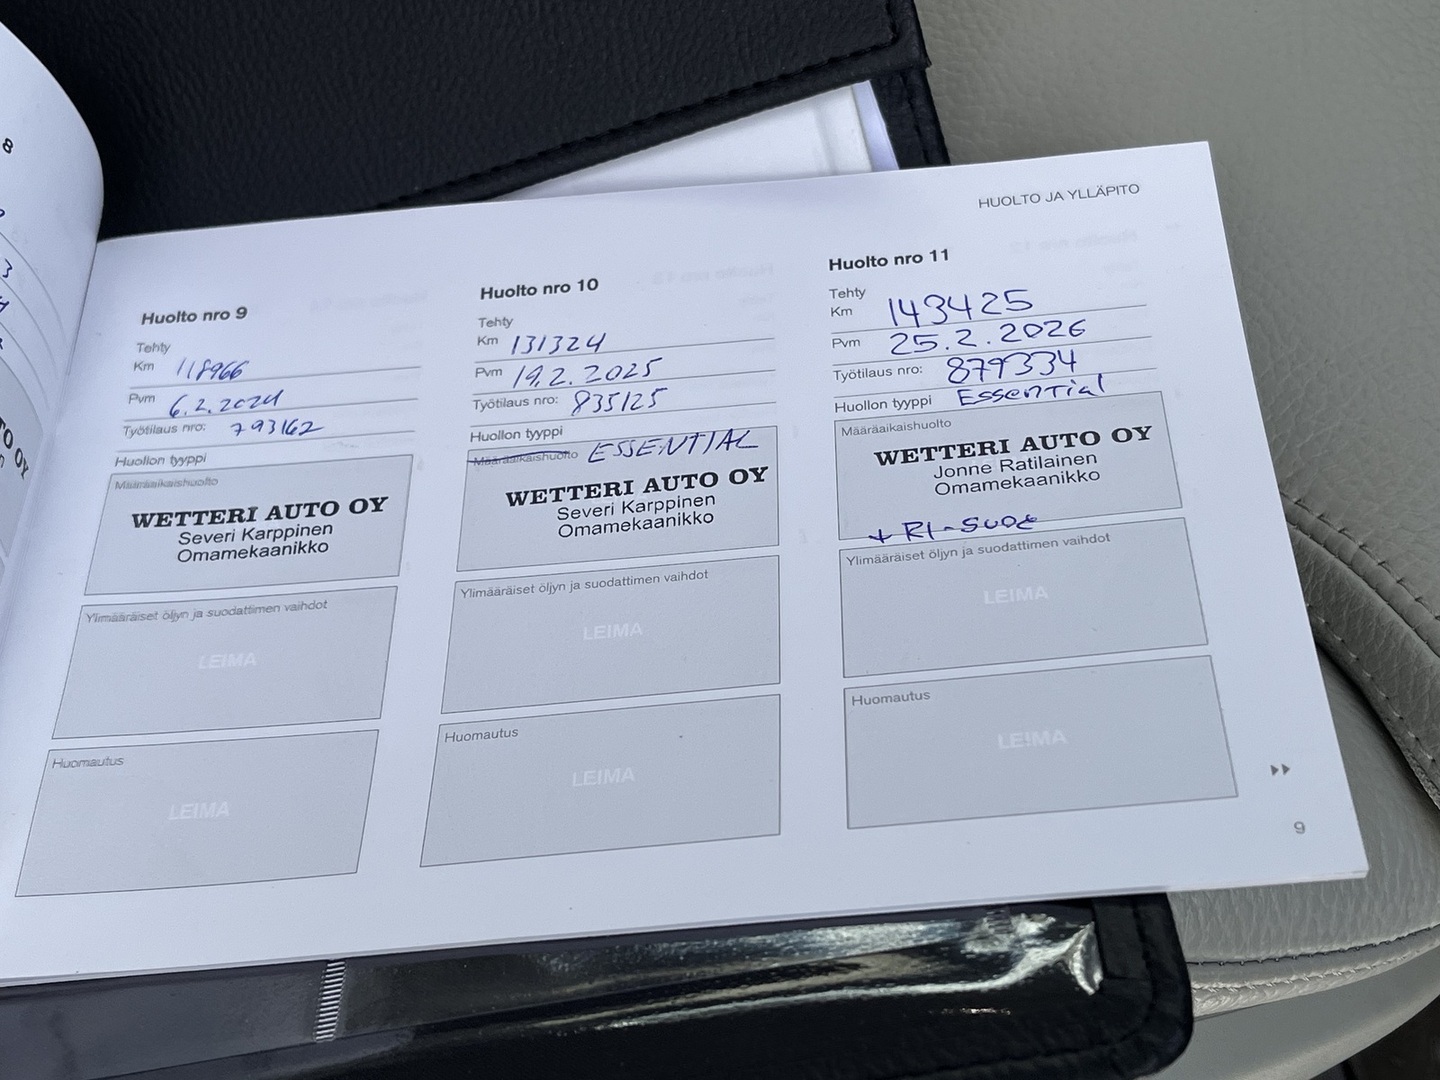 8
HUOLTO JA YLLÄPITO
Huolto nro 9
Tehty
Km 118966
Pvm 6.2.2024
Työtilaus nro: 793162
Huollon tyyppi
Määräaikaishuolto
WETTERI AUTO OY
Severi Karppinen
Omamekaanikko
Ylimääräiset öljyn ja suodattimen vaihdot
LEIMA
Huomautus
LEIMA
Huolto nro 10
Tehty
Km 131324
Pvm 19.2.2025
Työtilaus nro: 835125
Huollon tyyppi
Määräaikaishuolto ESSENTIAL
WETTERI AUTO OY
Severi Karppinen
Omamekaanikko
Ylimääräiset öljyn ja suodattimen vaihdot
LEIMA
Huomautus
LEIMA
Huolto nro 11
Tehty
Km 143425
Pvm 25.2.2026
Työtilaus nro: 879334
Huollon tyyppi Essential
Määräaikaishuolto
WETTERI AUTO OY
Jonne Ratilainen
Omamekaanikko
Ylimääräiset öljyn ja suodattimen vaihdot
LEIMA
Huomautus
LEIMA
9